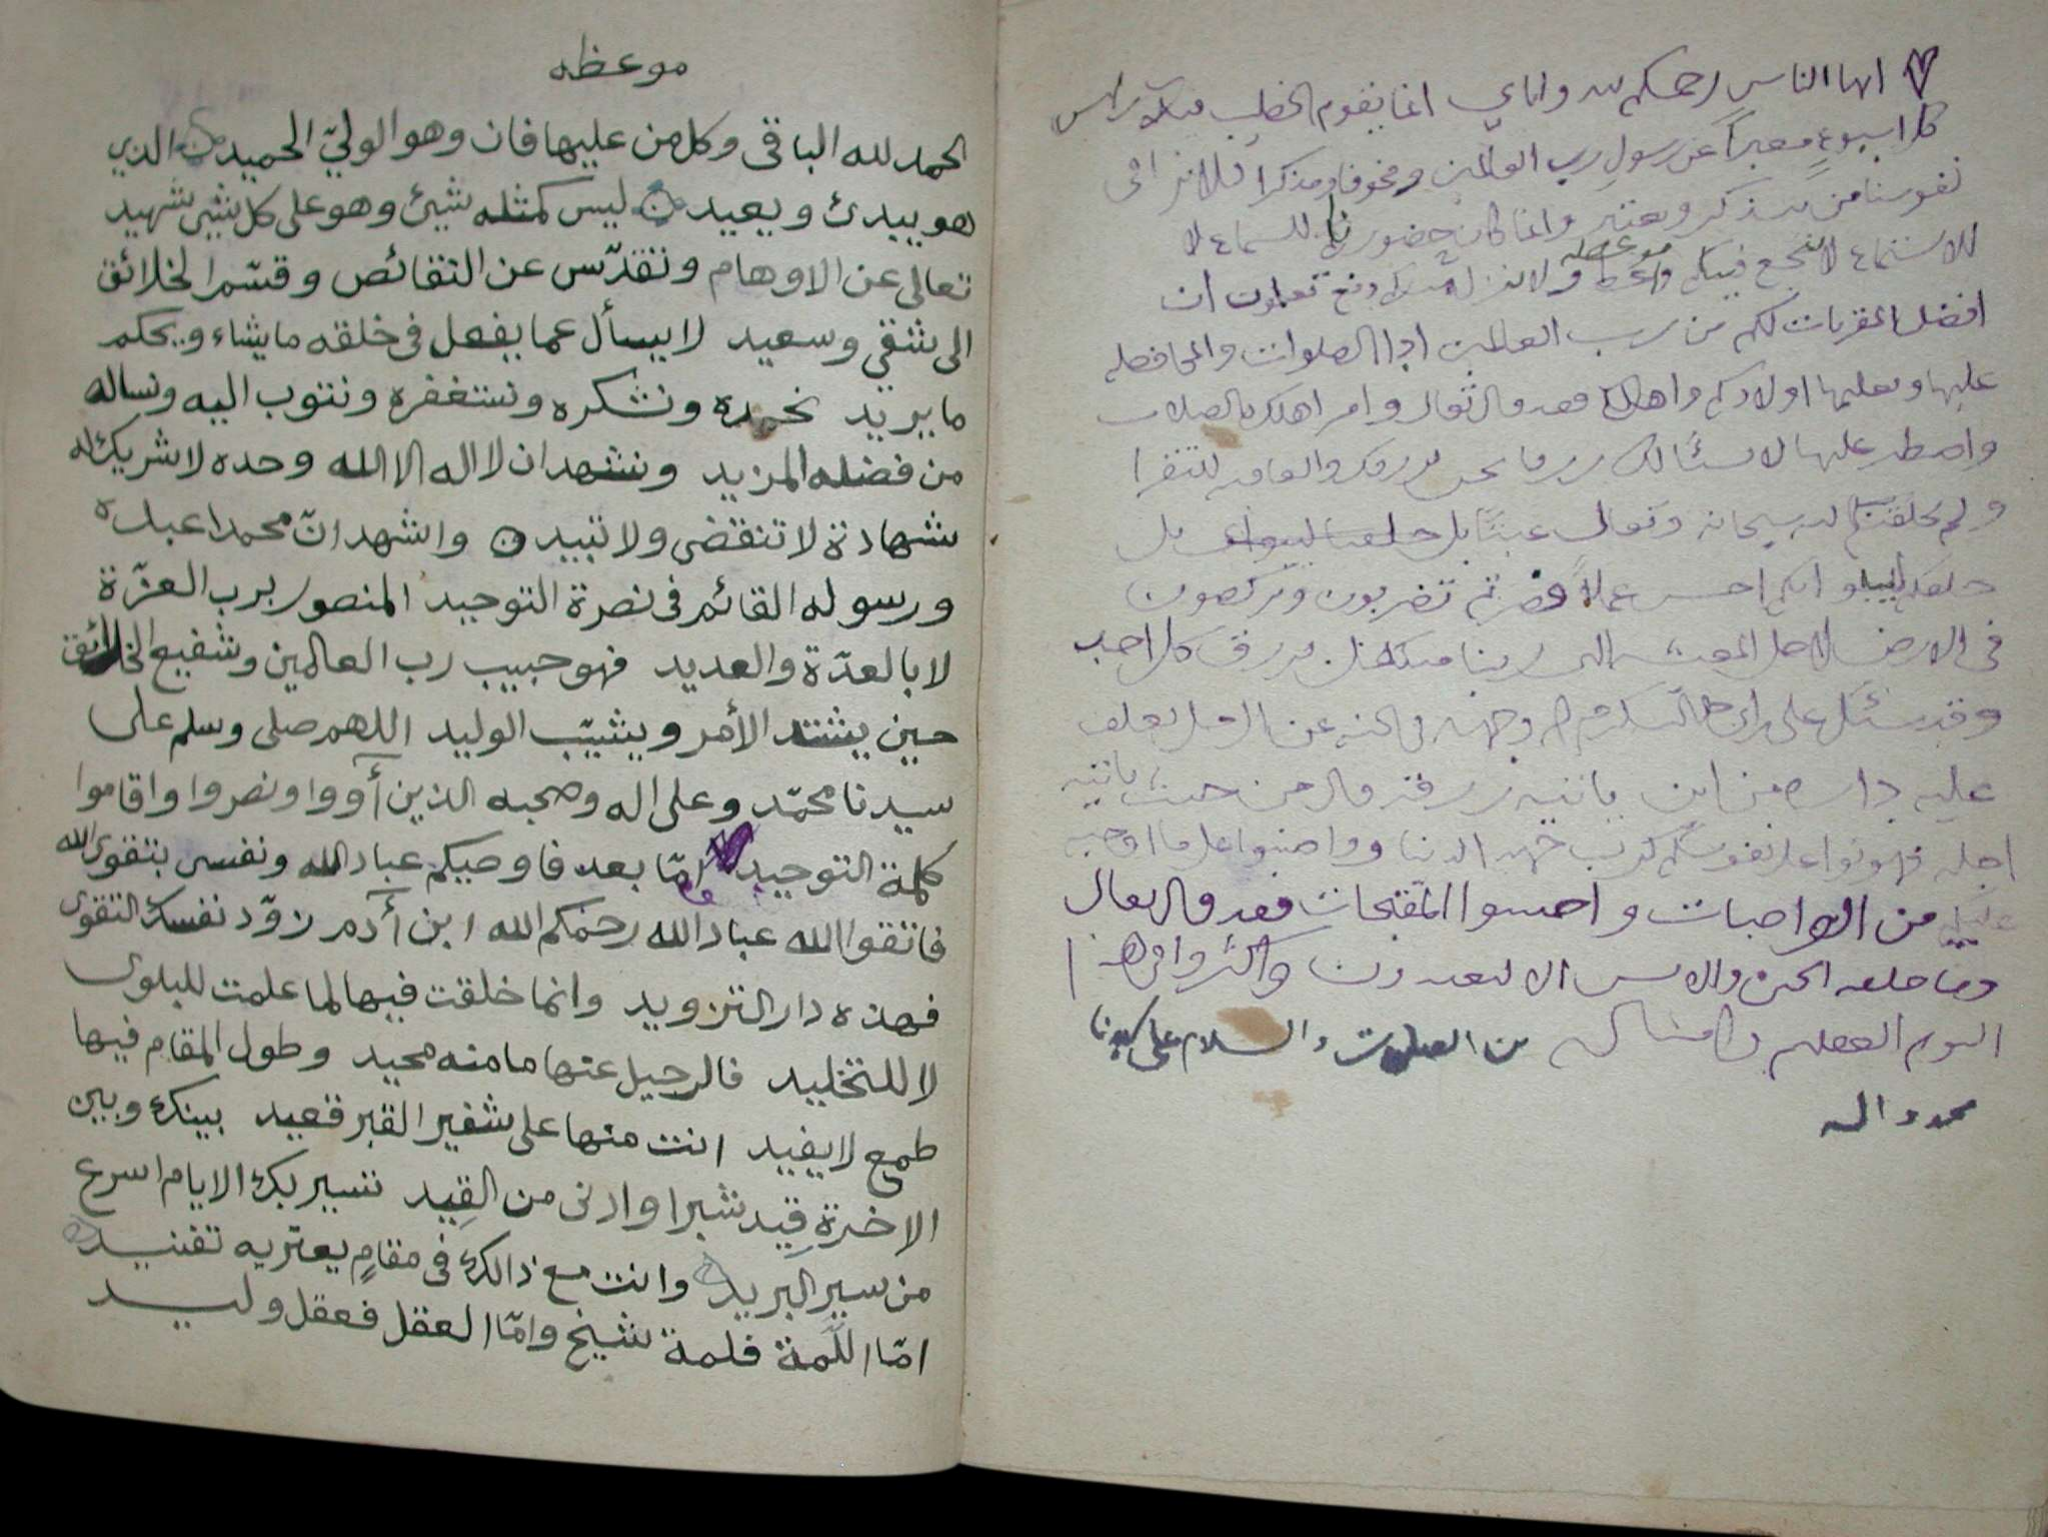 ايها الناس رحمكم الله واياي انما يقوم الخطيب
كل اسبوع معبراً عن رسول رب العالمين ومخوفا ومذكرا فلا نرا في
نفوسنا من يتذكر ويعتبر وانما كان حضورنا للسماع لا
للاستماع لا تنجع فيكم موعظه تعلمون ان
افضل المقربات لكم من رب العالمين ادا الصلوات والمحافظه
عليها وتعليمها اولادكم واهلكم فقد قال تعالى وامر اهلك بالصلاة
واصطبر عليها لا نسئالك رزقا نحن نرزقك والعاقبه للتقوا
ولم يخلقكم الله سبحانه وتعالى عبثاً بل خلقنا ليبلوا بل
خلقكم ليبلو ايكم احسن عملاً تضربون وتركضون
في الارض لاجل المعيشه التي ربنا متكفل برزق كل احد
وقد سئل علي كرم الله وجهه في الجنه عن الرجل يغلق
عليه داره من اين ياتيه رزقه قال من حيث ياتيه
اجله فهونوا على نفوسكم وواضبوا على ما اوجبه
عليكم من الواجبات واجتنبوا المقبحات فقد قال تعالى
وما خلقت الجن والانس الا ليعبدون واكثروا في هذا
اليوم العظيم وامثاله من الصلوات والسلام على سيدنا
محمد واله
موعظه
الحمد لله الباقى وكل من عليها فان وهو الوليّ الحميد الذي
هو يبدئ ويعيد ليس كمثله شيئ وهو على كل شيئ شهيد
تعالى عن الاوهام وتقدّس عن النقائص وقسّم الخلائق
الى شقي وسعيد لا يسأل عما يفعل في خلقه ما يشاء ويحكم
ما يريد نحمده ونشكره ونستغفره ونتوب اليه ونساله
من فضله المزيد ونشهد ان لا اله الا الله وحده لا شريك له
شهادة لا تنقضى ولا تبيد واشهد انّ محمدا عبده
ورسوله القائم في نصرة التوحيد المنصور برب العزّة
لا بالعدّة والعديد فهو حبيب رب العالمين وشفيع الخلائق
حين يشتد الأمر ويشيّب الوليد اللهم صلى وسلم على
سيدنا محمّد وعلى اله وصحبه الذين أووا ونصروا واقاموا
كلمة التوحيد امّا بعد فاوصيكم عباد الله ونفسى بتقوى الله
فاتقوا الله عباد الله رحمكم الله ابن أدم زوّد نفسك التقوى
فهذه دار التزويد وانما خلقت فيها لما علمت للبلوى
لا للتخليد فالرحيل عنها ما منه محيد وطول المقام فيها
طمع لا يفيد انت منها على شفير القبر قعيد بينك وبين
الاخرة قِيد شبرا وادنى من القِيد تسير بك الايام اسرع
من سير البريد وانت مع ذالك في مقامٍ يعتريه تفنيد
امّا اللّمة فلمة شيخ وامّا العقل فعقل وليد